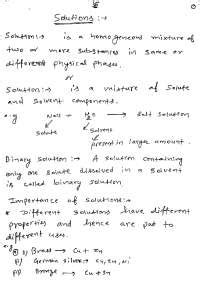 Solutions :-
Solution:→ is a homogeneous mixture of
two or more substances in same or
different physical phases.
or
Solution:→ is a mixture of solute
and solvent components.
e.g NaCl + H₂O → Salt solution
solute solvent
present in large amount.
Binary solution :→ A solution containing
only one solute dissolved in a solvent
is called binary solution
Importance of solutions:→
* Different solutions have different
properties and hence are put to
different uses.
e.g i) Brass → Cu + Zn
ii) German silver → Cu, Zn, Ni
iii) Bronze → Cu + Sn